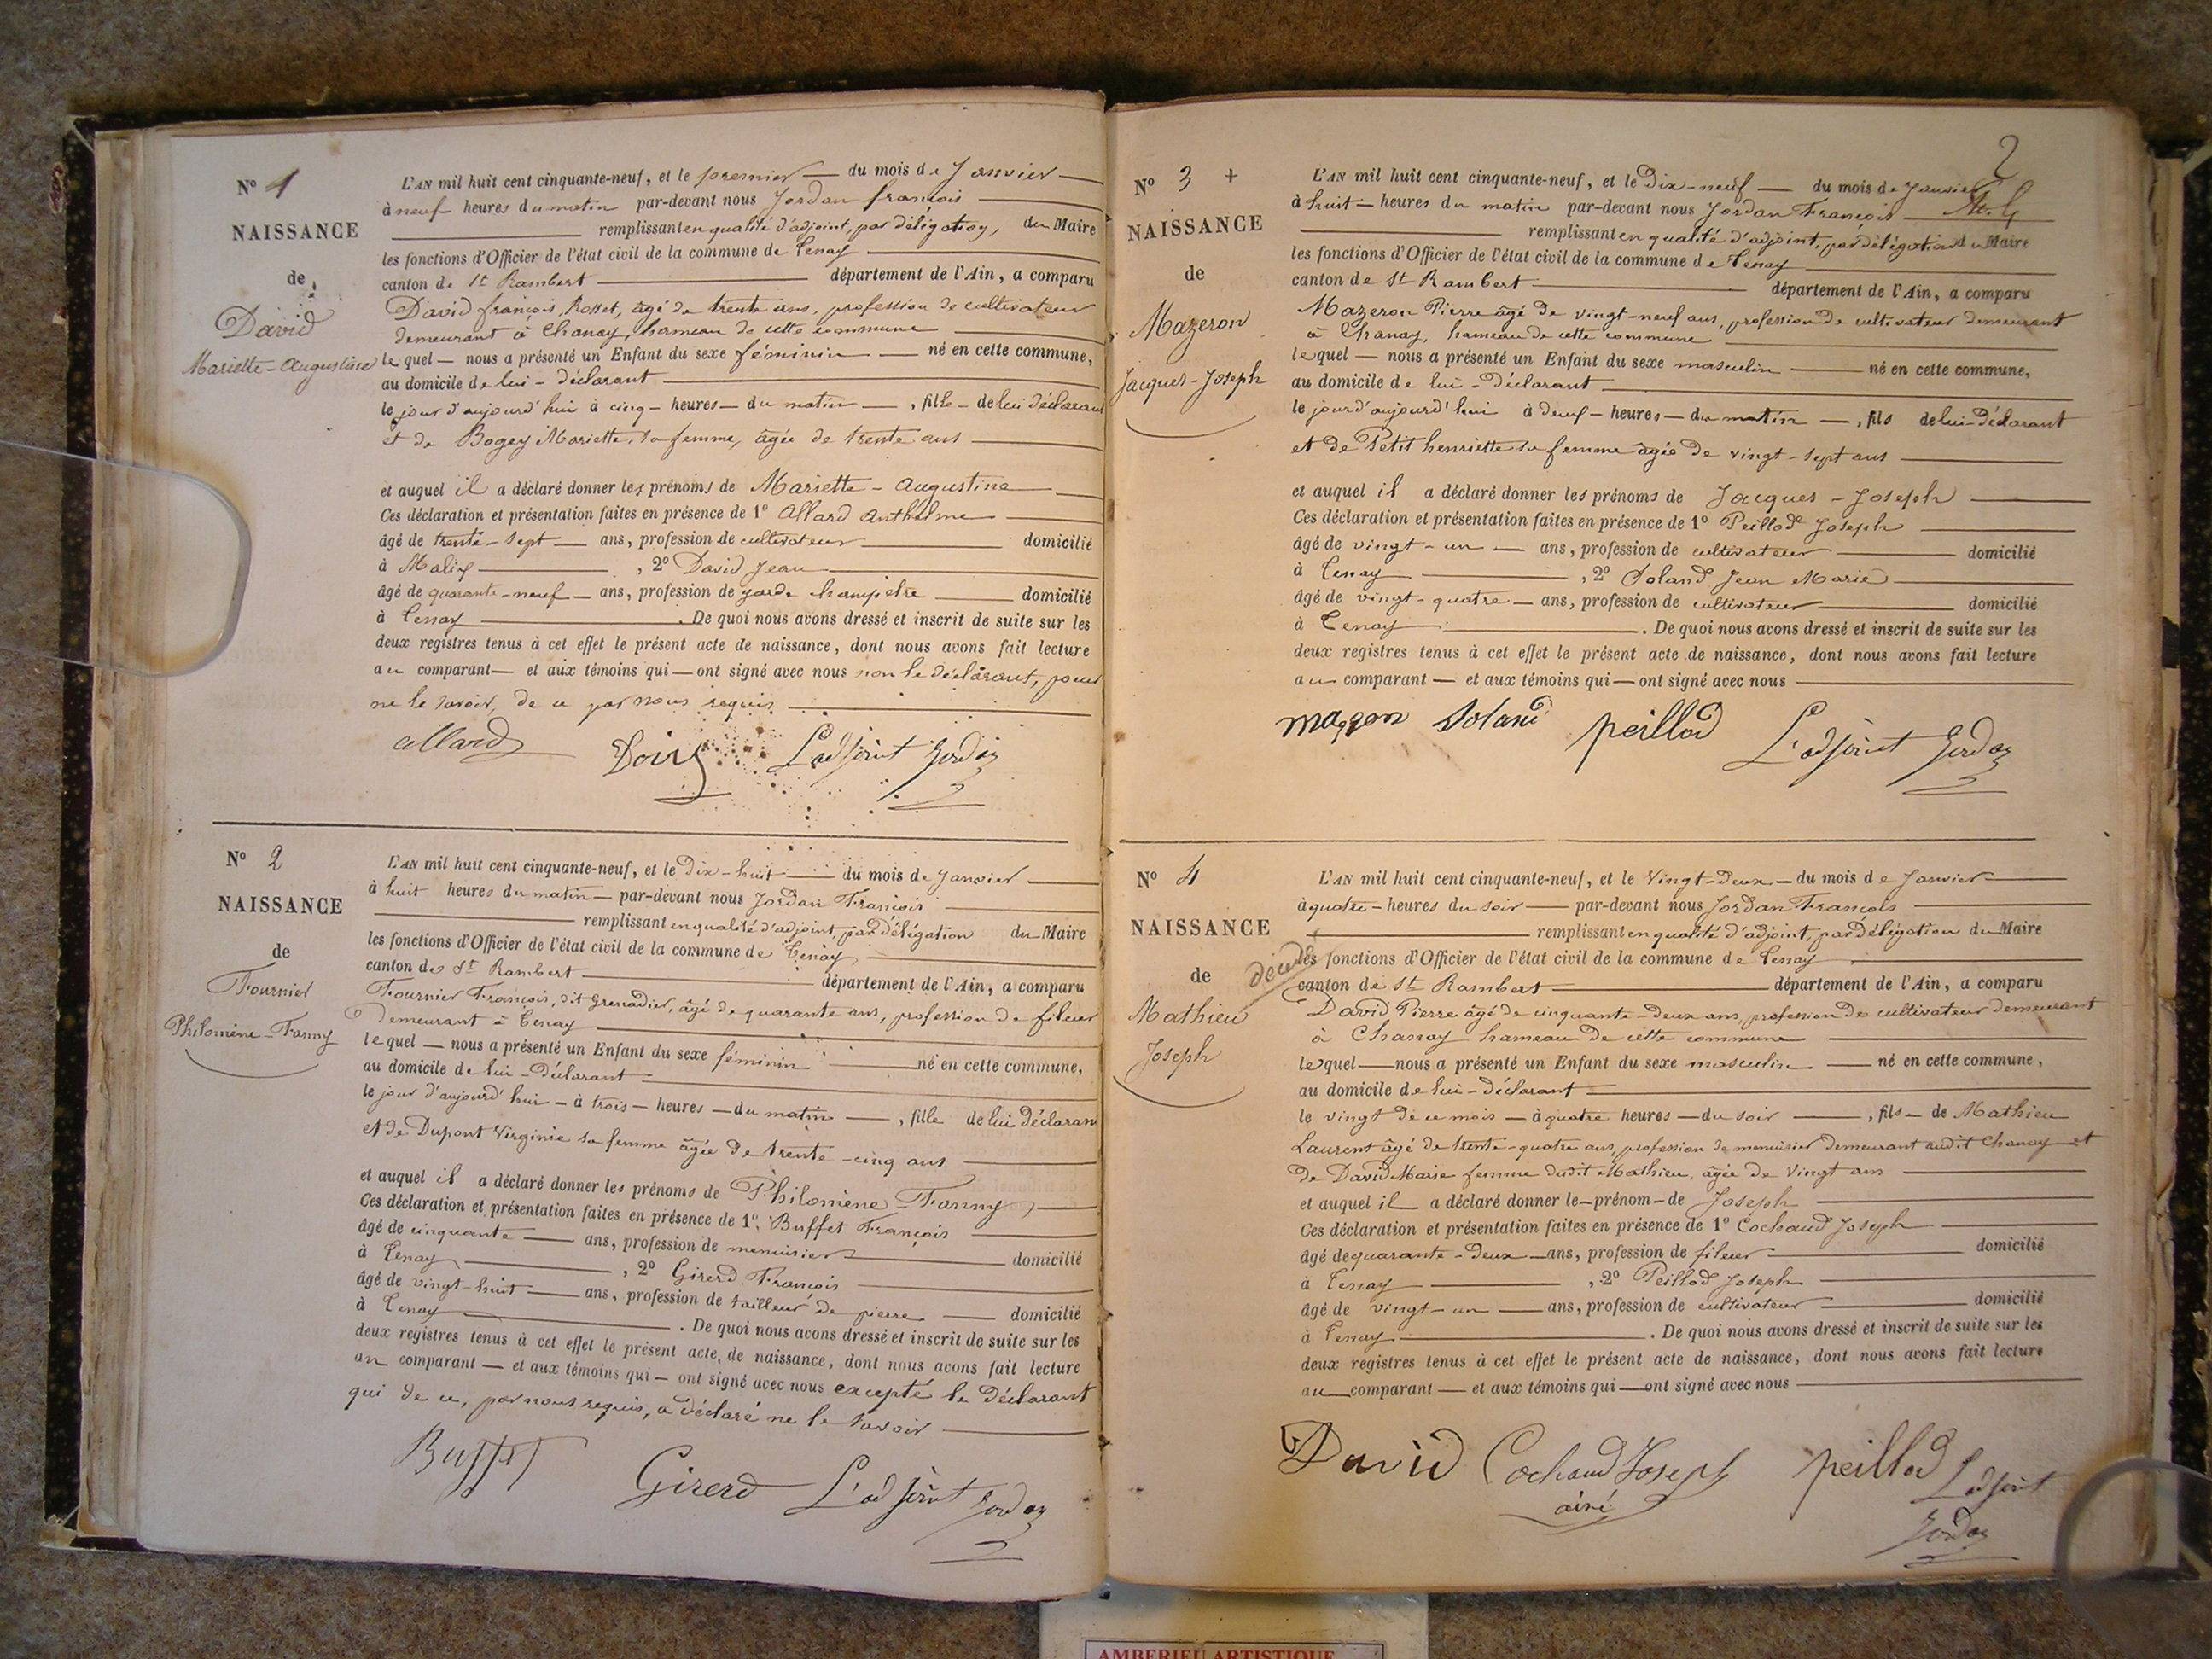 N° 1
NAISSANCE
de
David
Mariette-Augustine
L'AN mil huit cent cinquante-neuf, et le premier du mois de Janvier
à neuf heures du matin par-devant nous Jordan françois
remplissant en qualité d'adjoint, par délégation, du Maire
les fonctions d'Officier de l'état civil de la commune de Tenay
canton de St Rambert département de l'Ain, a comparu
David françois, Rosset, âgé de trente ans, profession de cultivateur
demeurant à Chanay, hameau de cette commune
lequel nous a présenté un Enfant du sexe féminin né en cette commune,
au domicile de lui-déclarant
le jour d'aujourd'hui à cinq heures du matin, fille de lui déclarant
et de Bogey Mariette, sa femme, âgée de trente ans
et auquel il a déclaré donner les prénoms de Mariette-Augustine
Ces déclaration et présentation faites en présence de 1° Allard Anthelme
âgé de trente-sept ans, profession de cultivateur domicilié
à Malix, 2° David Jean
âgé de quarante-neuf ans, profession de garde champêtre domicilié
à Tenay. De quoi nous avons dressé et inscrit de suite sur les
deux registres tenus à cet effet le présent acte de naissance, dont nous avons fait lecture
au comparant et aux témoins qui ont signé avec nous non le déclarant, pour
ne le savoir, de ce par nous requis
allard L'adjoint Jordan
N° 2
NAISSANCE
de
Fournier
Philomène-Fanny
L'AN mil huit cent cinquante-neuf, et le Dix-huit du mois de Janvier
à huit heures du matin par-devant nous Jordan François
remplissant en qualité d'adjoint, par Délégation du Maire
les fonctions d'Officier de l'état civil de la commune de Tenay
canton de St Rambert département de l'Ain, a comparu
Fournier François, dit Grenadier, âgé de quarante ans, profession de fileur
demeurant à Tenay
lequel nous a présenté un Enfant du sexe féminin né en cette commune,
au domicile de lui-déclarant
le jour d'aujourd'hui à trois heures du matin, fille de lui déclarant
et de Dupont Virginie sa femme âgée de trente-cinq ans
et auquel il a déclaré donner les prénoms de Philomène-Fanny
Ces déclaration et présentation faites en présence de 1° Buffet François
âgé de cinquante ans, profession de menuisier domicilié
à Tenay, 2° Girerd François
âgé de vingt-huit ans, profession de tailleur de pierre domicilié
à Tenay. De quoi nous avons dressé et inscrit de suite sur les
deux registres tenus à cet effet le présent acte de naissance, dont nous avons fait lecture
au comparant et aux témoins qui ont signé avec nous excepté le Déclarant
qui de ce, par nous requis, a déclaré ne le savoir
Buffet Girerd L'adjoint Jordan
2
N° 3 +
NAISSANCE
de
Mazeron
Jacques-Joseph
L'AN mil huit cent cinquante-neuf, et le Dix-neuf du mois de Janvier
à huit heures du matin par-devant nous Jordan François
remplissant en qualité d'adjoint, par délégation du Maire
les fonctions d'Officier de l'état civil de la commune de Tenay
canton de St Rambert département de l'Ain, a comparu
Mazeron Pierre âgé de vingt-neuf ans, profession de cultivateur demeurant
à Chanay, hameau de cette commune
lequel nous a présenté un Enfant du sexe masculin né en cette commune,
au domicile de lui-déclarant
le jour d'aujourd'hui à heures du matin, fils de lui-Déclarant
et de Petit henriette sa femme âgée de vingt-sept ans
et auquel il a déclaré donner les prénoms de Jacques-Joseph
Ces déclaration et présentation faites en présence de 1° Peillod Joseph
âgé de vingt-un ans, profession de cultivateur domicilié
à Tenay, 2° Soland Jean Marie
âgé de vingt-quatre ans, profession de cultivateur domicilié
à Tenay. De quoi nous avons dressé et inscrit de suite sur les
deux registres tenus à cet effet le présent acte de naissance, dont nous avons fait lecture
au comparant et aux témoins qui ont signé avec nous
Soland peillod L'adjoint Jordan
N° 4
NAISSANCE
de
décédé
Mathieu
Joseph
L'AN mil huit cent cinquante-neuf, et le Vingt-Deux du mois de Janvier
à quatre heures du soir par-devant nous Jordan François
remplissant en qualité d'adjoint, par Délégation du Maire
les fonctions d'Officier de l'état civil de la commune de Tenay
canton de St Rambert département de l'Ain, a comparu
David Pierre âgé de cinquante-Deux ans, profession de cultivateur demeurant
à Chanay hameau de cette commune
lequel nous a présenté un Enfant du sexe masculin né en cette commune,
au domicile de lui-déclarant
le vingt de ce mois à quatre heures du soir, fils de Mathieu
Laurent âgé de trente-quatre ans, profession de menuisier demeurant audit Chanay et
de David Marie femme dudit Mathieu, âgée de vingt ans
et auquel il a déclaré donner le prénom de Joseph
Ces déclaration et présentation faites en présence de 1° Cochaud Joseph
âgé de quarante-Deux ans, profession de fileur domicilié
à Tenay, 2° Peillod Joseph
âgé de vingt-un ans, profession de cultivateur domicilié
à Tenay. De quoi nous avons dressé et inscrit de suite sur les
deux registres tenus à cet effet le présent acte de naissance, dont nous avons fait lecture
au comparant et aux témoins qui ont signé avec nous
David Cochaud Joseph peillod L'adjoint
ainé Jordan
AMBERIEU ARTISTIQUE